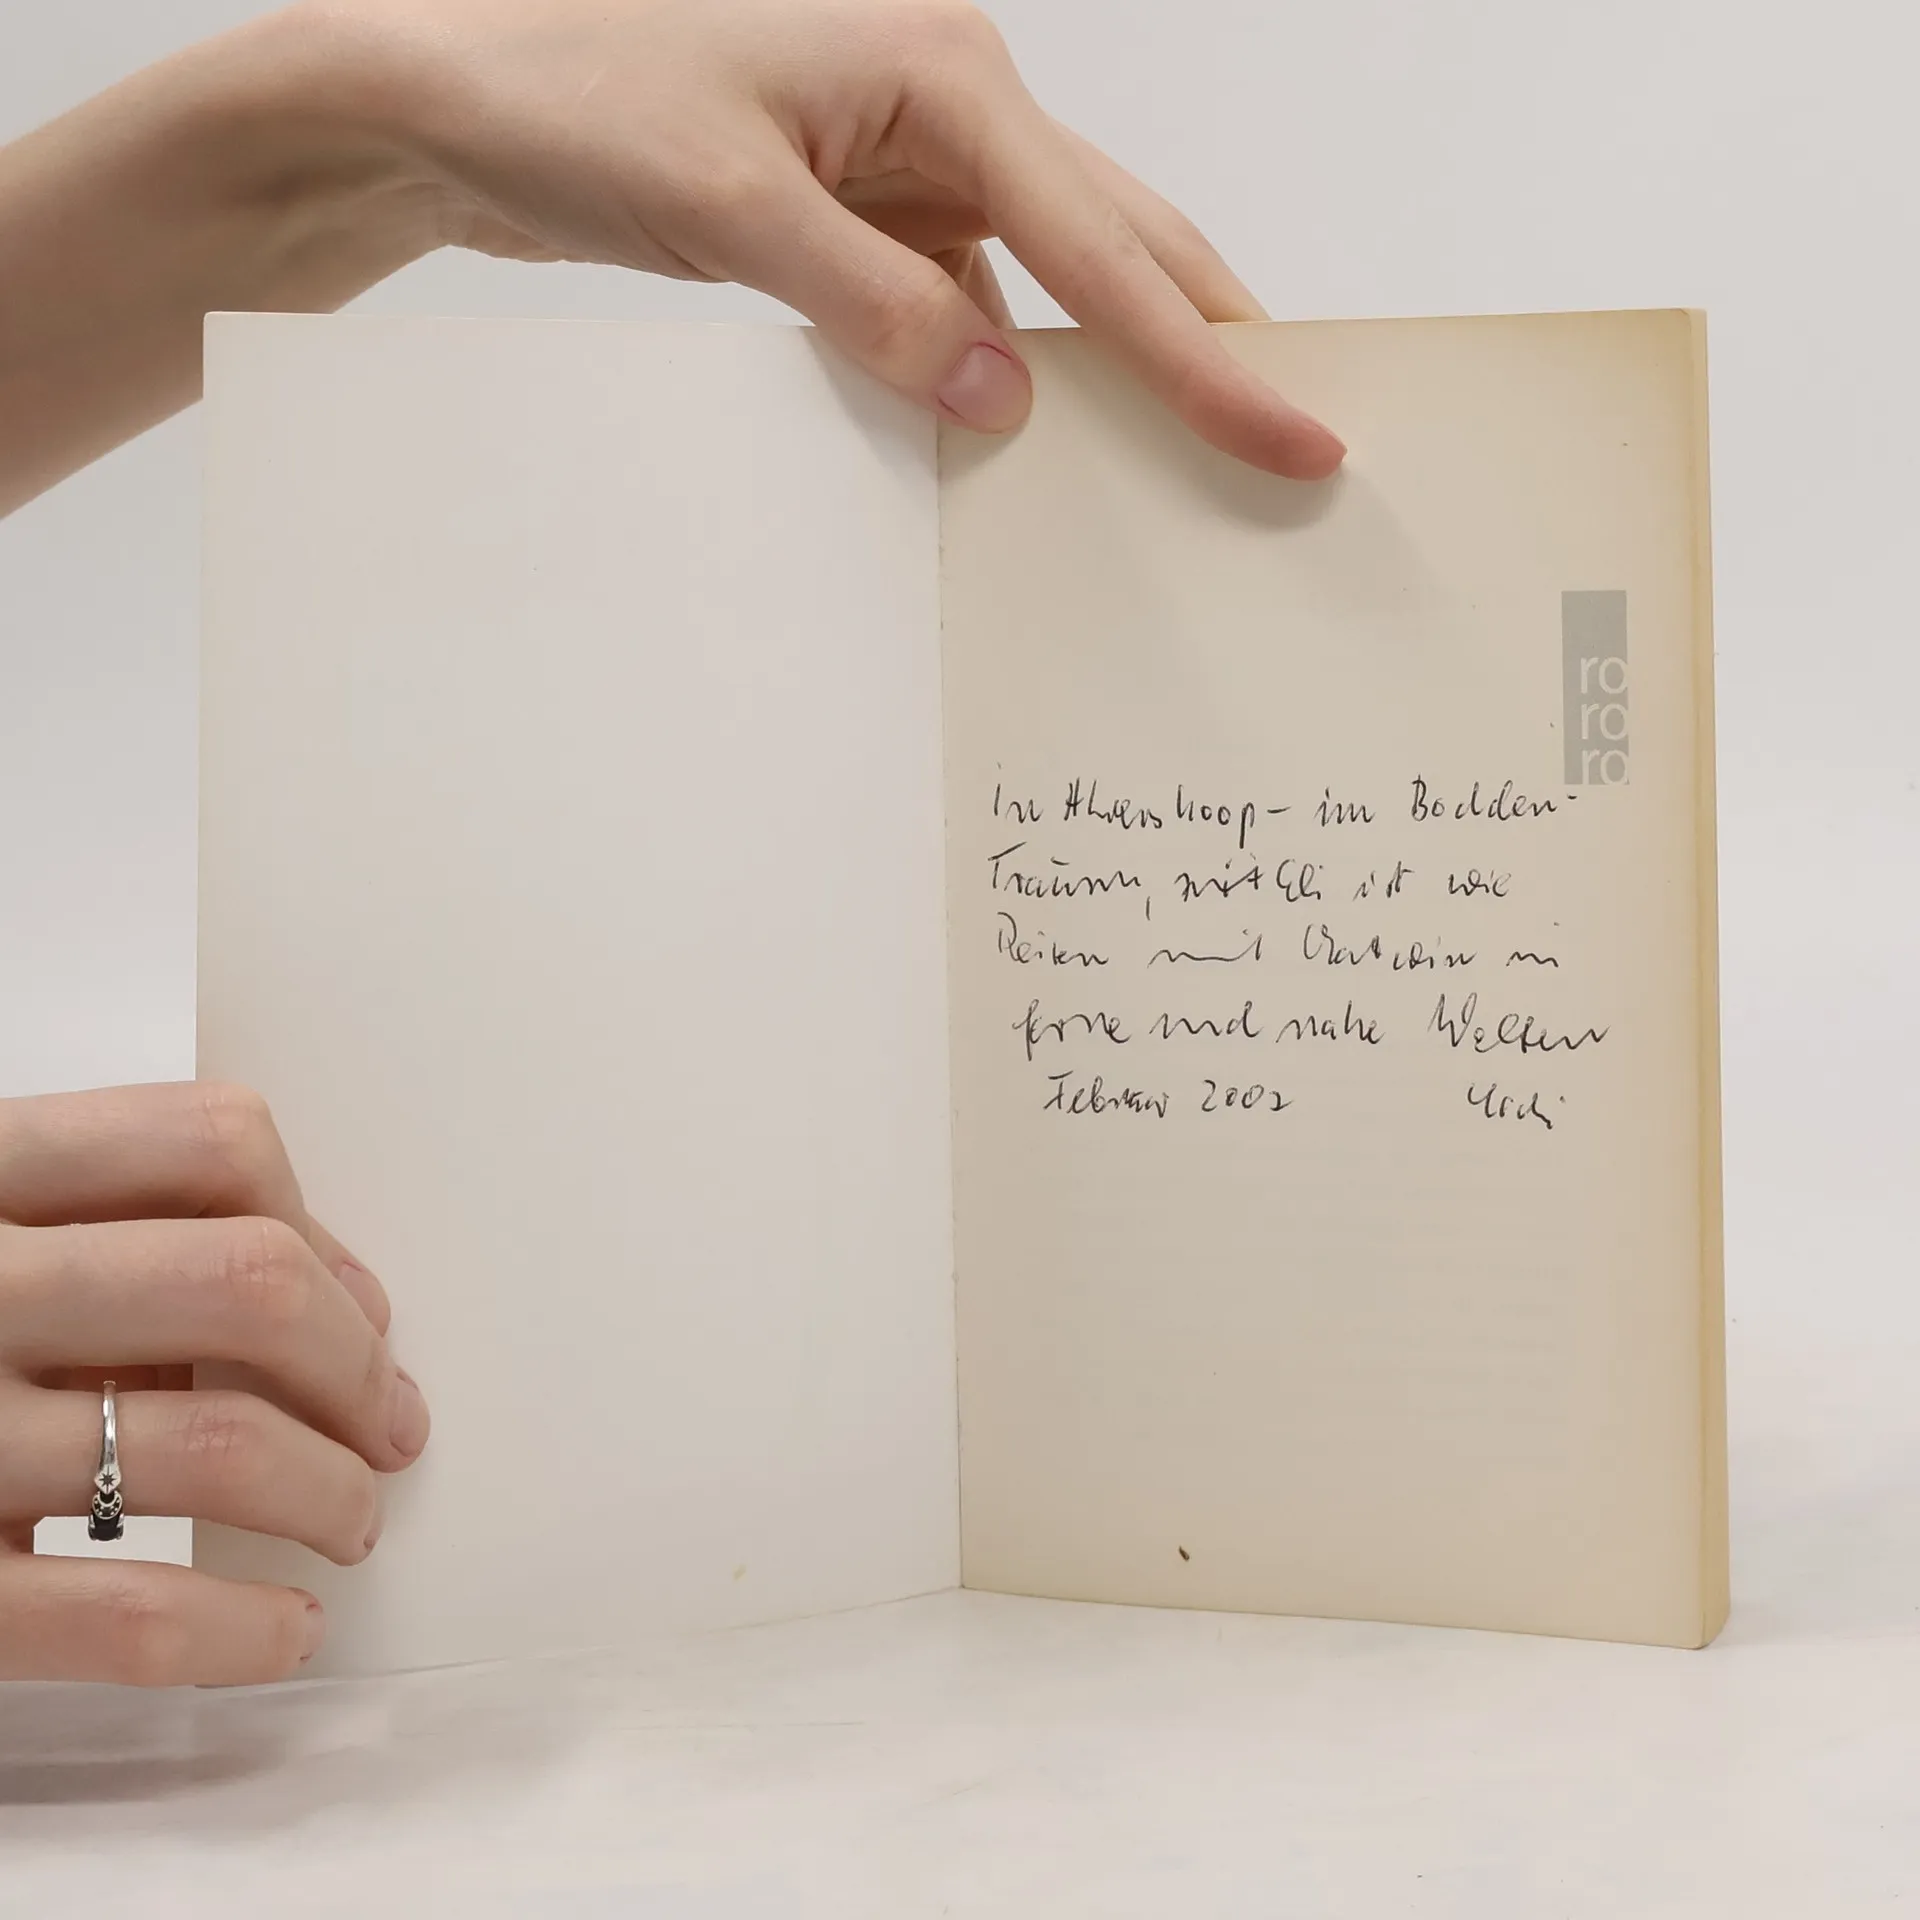 ro
ro
ro
In Ahrenshoop – im Bodden-
Traum, mit Eli ist wie
Reisen mit Chatwin in
ferne und nahe Welten
Februar 2002